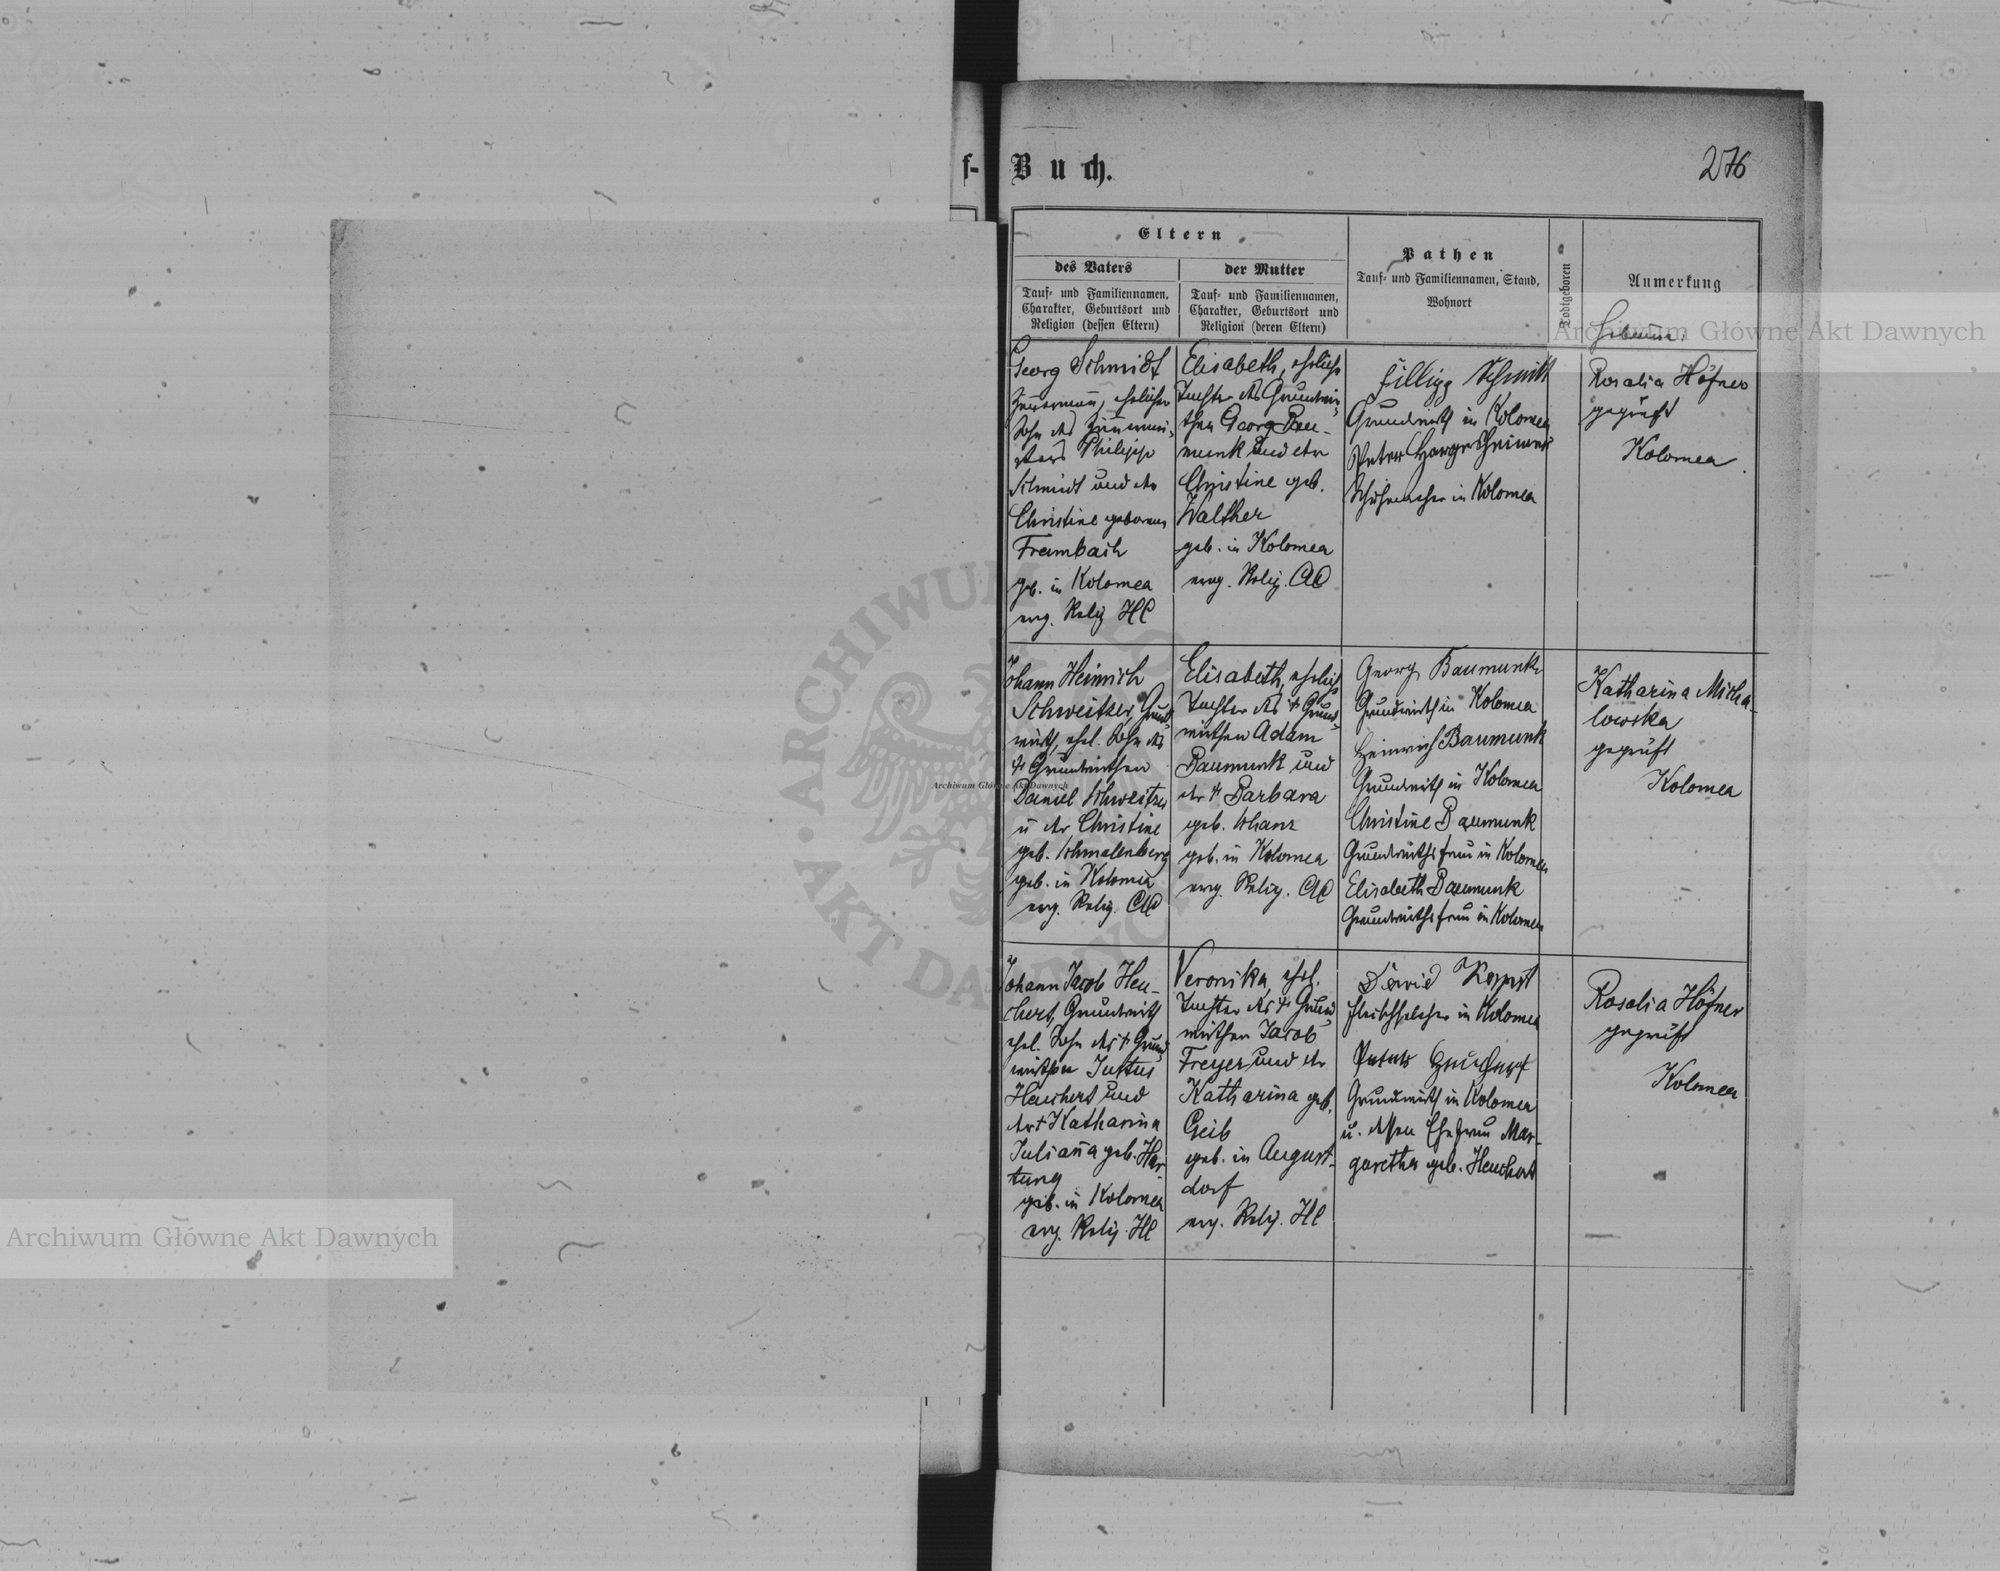 f-
Buch.
276
Eltern
des Vaters
Tauf- und Familiennamen,
Charakter, Geburtsort und
Religion (dessen Eltern)
der Mutter
Tauf- und Familiennamen,
Charakter, Geburtsort und
Religion (deren Eltern)
Pathen
Tauf- und Familiennamen, Stand,
Wohnort
Todtgeboren
Anmerkung
Hebamme.
Georg Schmidt
Zimmermann, ehelicher
Sohn des Zimmermei-
sters Philipp
Schmidt und der
Christine geborene
Frambach
geb. in Kolomea
evg. Relig HC
Elisabeth, eheliche
Tochter des Grundwir-
then Georg Bau-
munk und der
Christine geb.
Walther
geb. in Kolomea
evg. Relig. AC
Filipp Schmitt
Grundwirth in Kolomea
Peter Hargesheimer
Schuhmacher in Kolomea
Rosalia Höfner
geprüft
Kolomea
Johann Heinrich
Schweitzer, Grund-
wirth, ehel. Sohn des
† Grundwirthen
Daniel Schweitzer
u der Christine
geb. Schmalenberg
geb. in Kolomea
evg. Relig. AC
Elisabeth, eheliche
Tochter des † Grund-
wirthen Adam
Baumunk und
der † Barbara
geb. Schanz
geb. in Kolomea
evg. Relig. AC
Georg Baumunk
Grundwirth in Kolomea
Heinrich Baumunk
Grundwirth in Kolomea
Christine Baumunk
Grundwirthsfrau in Kolomea
Elisabeth Baumunk
Grundwirthsfrau in Kolomea
Katharina Micha-
lowska
geprüft
Kolomea
Johann Jacob Heu-
chert, Grundwirth
ehel. Sohn des † Grund
wirthen Justus
Heuchert und
der † Katharina
Juliana geb. Har
tung
geb. in Kolomea
evg. Relig. HC
Veronika, ehel.
Tochter des † Grund
wirthen Jacob
Freyer und der
Katharina geb.
Geib
geb. in August-
dorf
evg. Relig. HC
David
Fleischselcher in Kolomea
Grundwirth in Kolomea
u. dessen Ehefrau Mar-
garetha geb. Heuchert
Rosalia Höfner
geprüft
Kolomea
Archiwum Główne Akt Dawnych
Archiwum Główne Akt Dawnych
Archiwum Główne Akt Dawnych